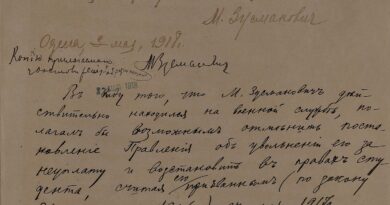 М. Зусманович
Одесса 2 мая, 1918 г.
Копію
М Зусманович
1918
Въ виду того, что М. Зусмановичъ дѣй
ствительно находился на военной службѣ, по
лагалъ бы возможнымъ отмѣнить поста
новленіе Правленія объ увольненіи его за
неуплату и возстановить въ правахъ сту
дента, считая его призваннымъ (по закону